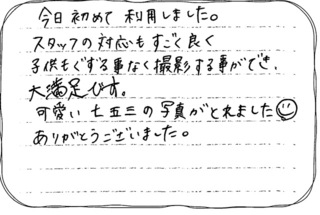 今日初めて利用しました。
スタッフの対応もすごく良く
子供もぐずる事なく撮影する事ができ、
大満足です。
可愛い七五三の写真がとれました
ありがとうございました。